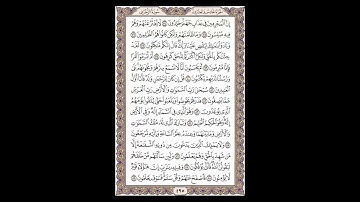 إِنَّ ٱلْمُجْرِمِينَ فِى عَذَابِ جَهَنَّمَ خَٰلِدُونَ ٧٤ لَا يُفَتَّرُ عَنْهُمْ وَهُمْ
فِيهِ مُبْلِسُونَ ٧٥ وَمَا ظَلَمْنَٰهُمْ وَلَٰكِن كَانُوا۟ هُمُ ٱلظَّٰلِمِينَ ٧٦
وَنَادَوْا۟ يَٰمَٰلِكُ لِيَقْضِ عَلَيْنَا رَبُّكَ قَالَ إِنَّكُم مَّٰكِثُونَ ٧٧
لَقَدْ جِئْنَٰكُم بِٱلْحَقِّ وَلَٰكِنَّ أَكْثَرَكُمْ لِلْحَقِّ كَٰرِهُونَ ٧٨ أَمْ أَبْرَمُوٓا۟ أَمْرًا
فَإِنَّا مُبْرِمُونَ ٧٩ أَمْ يَحْسَبُونَ أَنَّا لَا نَسْمَعُ سِرَّهُمْ وَنَجْوَىٰهُم بَلَىٰ
وَرُسُلُنَا لَدَيْهِمْ يَكْتُبُونَ ٨٠ قُلْ إِن كَانَ لِلرَّحْمَٰنِ وَلَدٌ فَأَنَا۠ أَوَّلُ
ٱلْعَٰبِدِينَ ٨١ سُبْحَٰنَ رَبِّ ٱلسَّمَٰوَٰتِ وَٱلْأَرْضِ رَبِّ ٱلْعَرْشِ
عَمَّا يَصِفُونَ ٨٢ فَذَرْهُمْ يَخُوضُوا۟ وَيَلْعَبُوا۟ حَتَّىٰ يُلَٰقُوا۟ يَوْمَهُمُ
ٱلَّذِى يُوعَدُونَ ٨٣ وَهُوَ ٱلَّذِى فِى ٱلسَّمَآءِ إِلَٰهٌ وَفِى ٱلْأَرْضِ
إِلَٰهٌ وَهُوَ ٱلْحَكِيمُ ٱلْعَلِيمُ ٨٤ وَتَبَارَكَ ٱلَّذِى لَهُۥ مُلْكُ ٱلسَّمَٰوَٰتِ
وَٱلْأَرْضِ وَمَا بَيْنَهُمَا وَعِندَهُۥ عِلْمُ ٱلسَّاعَةِ وَإِلَيْهِ تُرْجَعُونَ ٨٥
وَلَا يَمْلِكُ ٱلَّذِينَ يَدْعُونَ مِن دُونِهِ ٱلشَّفَٰعَةَ إِلَّا
مَن شَهِدَ بِٱلْحَقِّ وَهُمْ يَعْلَمُونَ ٨٦ وَلَئِن سَأَلْتَهُم مَّنْ خَلَقَهُمْ
لَيَقُولُنَّ ٱللَّهُ فَأَنَّىٰ يُؤْفَكُونَ ٨٧ وَقِيلِهِۦ يَٰرَبِّ إِنَّ هَٰٓؤُلَآءِ قَوْمٌ
لَّا يُؤْمِنُونَ ٨٨ فَٱصْفَحْ عَنْهُمْ وَقُلْ سَلَٰمٌ فَسَوْفَ يَعْلَمُونَ ٨٩
٤٩٥